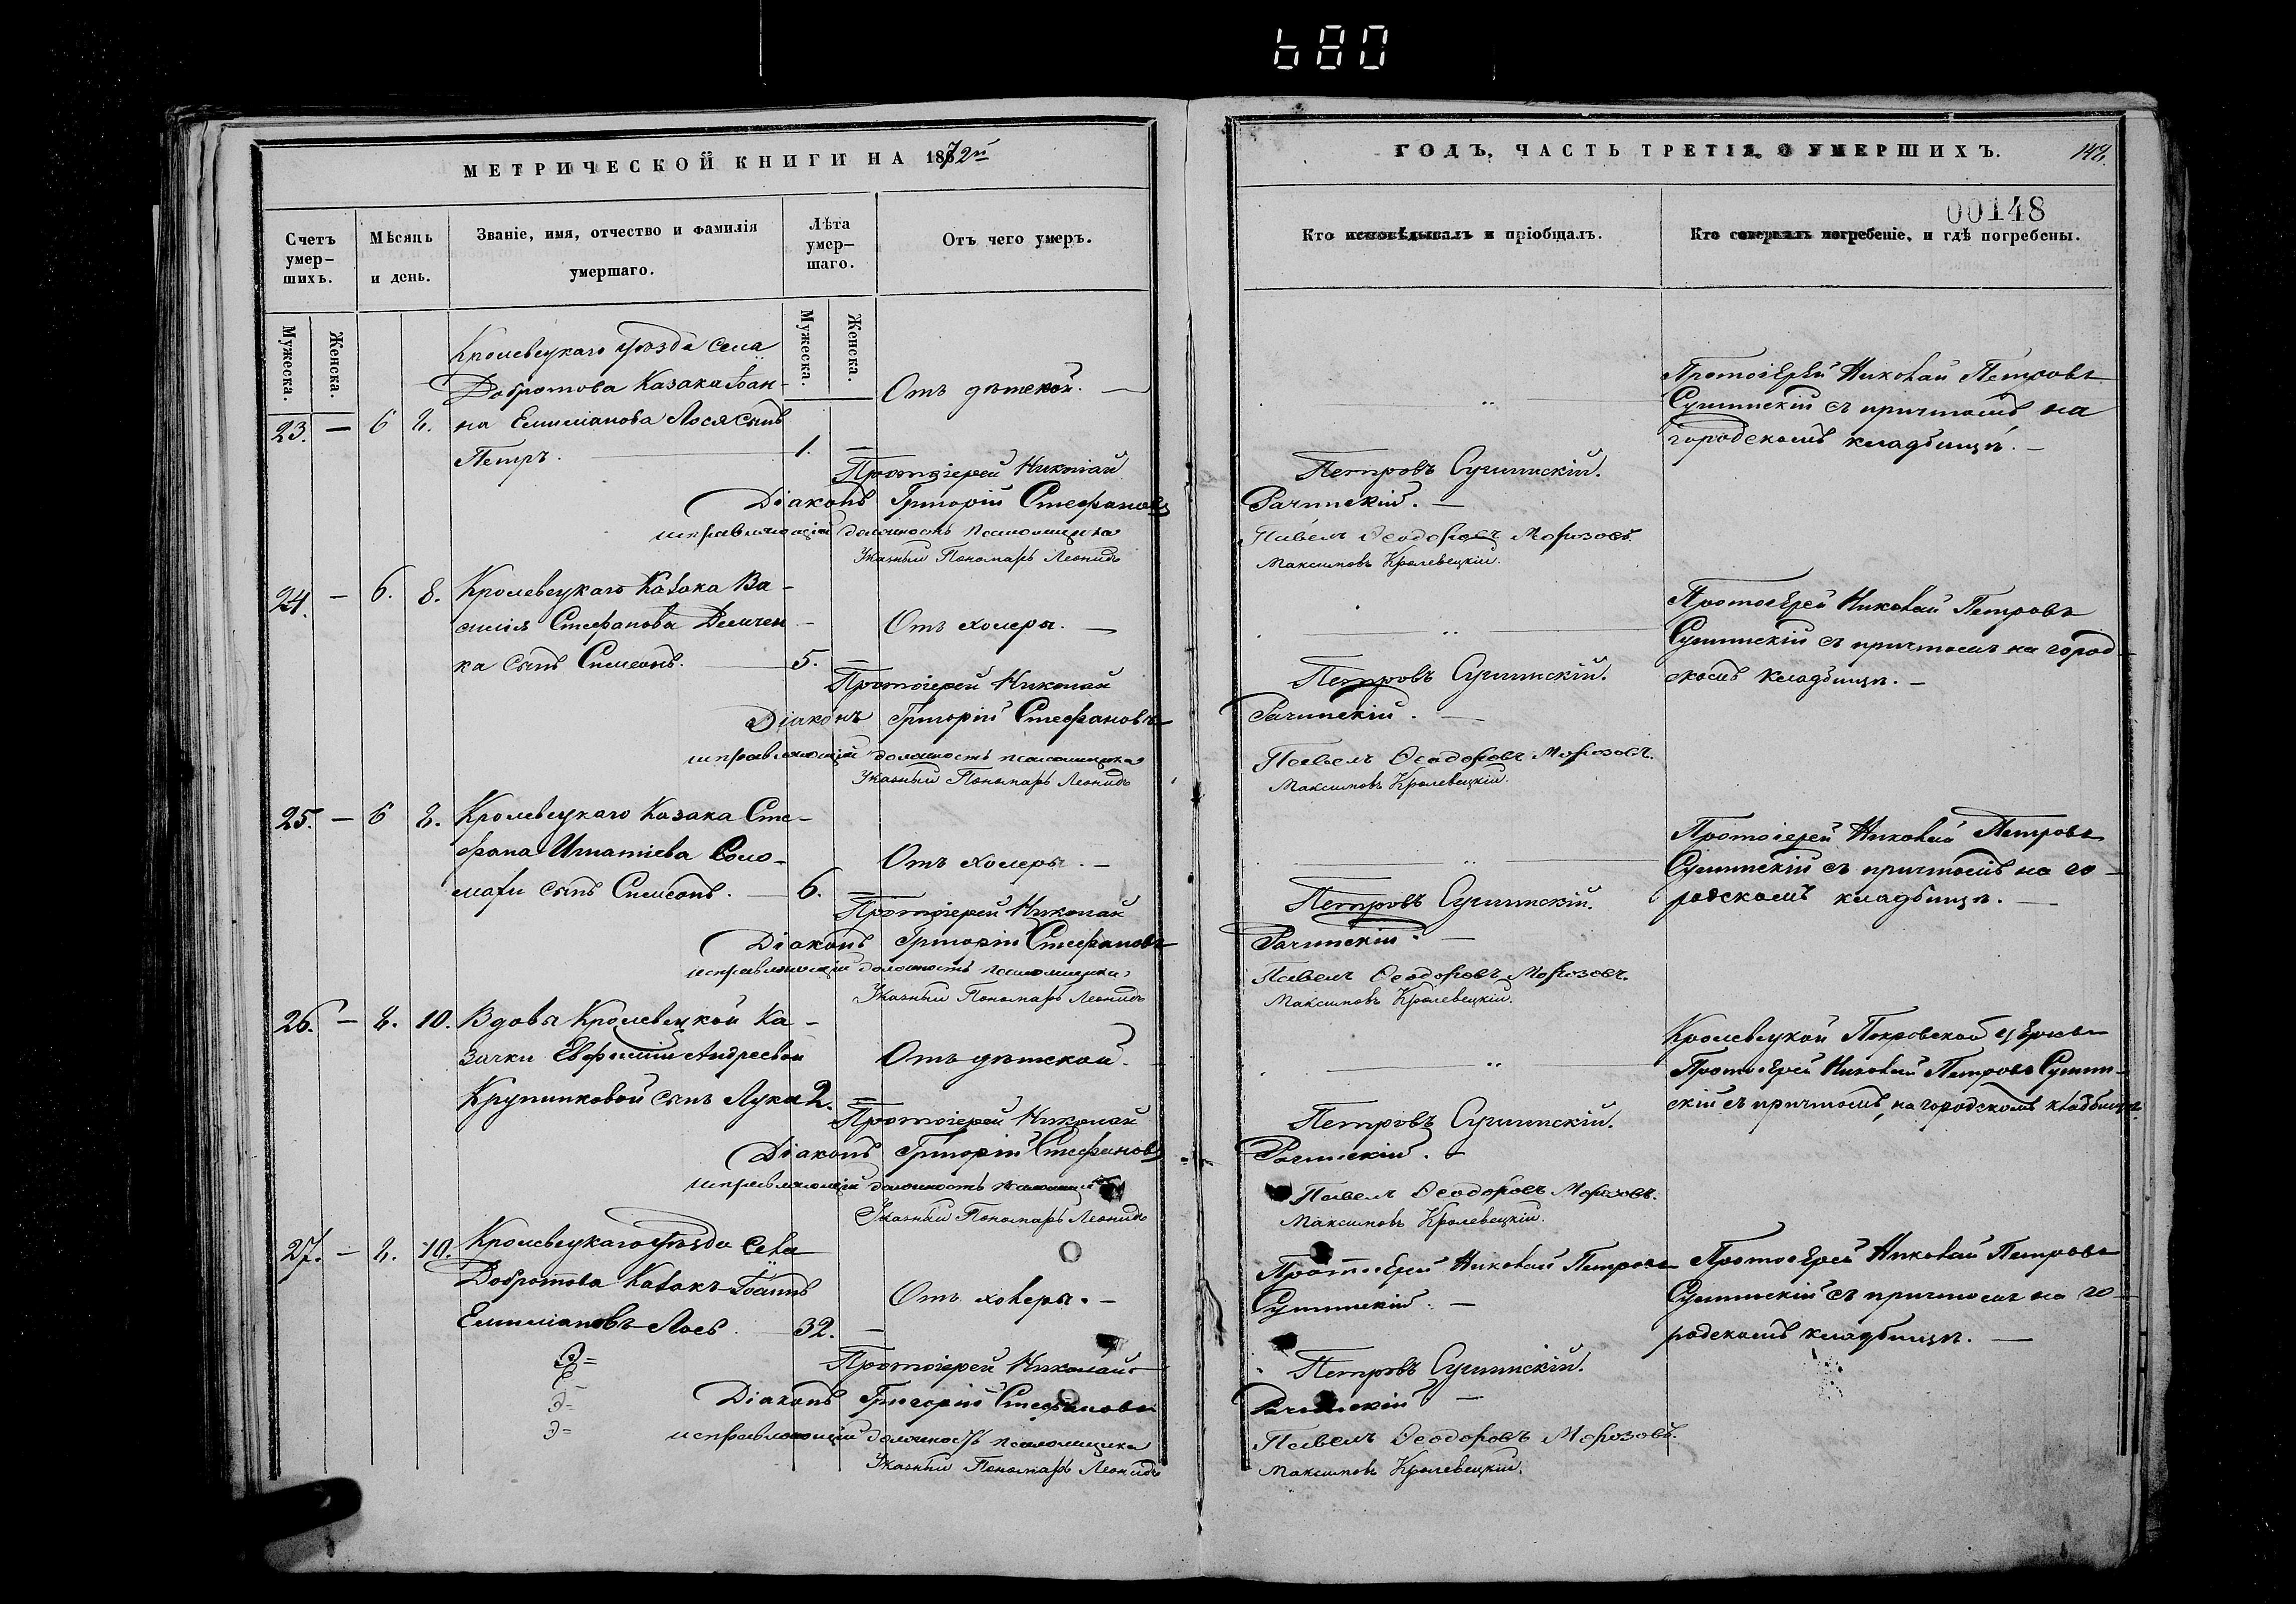 680
МЕТРИЧЕСКОЙ КНИГИ НА 1872й
ГОДЪ, ЧАСТЬ ТРЕТІЯ, О УМЕРШИХЪ.
148.
00148
Счетъ умер-шихъ.
Мѣсяцъ и день.
Званіе, имя, отчество и фамилія умершаго.
Лѣта умер-шаго.
Отъ чего умеръ.
Кто исповѣдывалъ и пріобщалъ.
Кто совершалъ погребеніе, и гдѣ погребены.
Мужеска.
Женска.
Мужеска.
Женска.
Кролевецкаго уѣзда села
Добротова Казака Іоан-
на Емиліанова Лося сынъ
Петръ.
23. — 6 8.
1. —
Отъ дѣтской. —
Протоіерей Николай Петровъ
Сушинскій съ причтомъ на
городскомъ кладбищѣ. —
Протоіерей Николай Петровъ Сушинскій.
Діаконъ Григорій Стефановъ Рачинскій. —
исправляющій должность псаломщика Павелъ Ѳеодоровъ Морозовъ
Указный Пономарь Леонидъ Максимовъ Кролевецкій.
24. — 6. 8. Кролевецкаго Казака Ва-
силія Стефанова Демчен-
ка сынъ Симеонъ. 5. —
Отъ холеры. —
Протоіерей Николай Петровъ
Сушинскій съ причтомъ на город-
скомъ кладбищѣ. —
Протоіерей Николай Петровъ Сушинскій.
Діаконъ Григорій Стефановъ Рачинскій. —
исправляющій должность псаломщика Павелъ Ѳеодоровъ Морозовъ.
Указный Пономарь Леонидъ Максимовъ Кролевецкій.
25. — 6 8. Кролевецкаго Казака Сте-
фана Игнатіева Соло-
махи сынъ Симеонъ. 6. —
Отъ холеры. —
Протоіерей Николай Петровъ
Сушинскій съ причтомъ на го-
родскомъ кладбищѣ. —
Протоіерей Николай Петровъ Сушинскій.
Діаконъ Григорій Стефановъ Рачинскій. —
исправляющій должность псаломщика Павелъ Ѳеодоровъ Морозовъ.
Указный Пономарь Леонидъ Максимовъ Кролевецкій.
26. — 8. 10. Вдовы Кролевецкой Ка-
зачки Евфиміи Андреевой
Крупинковой сынъ Лука 2. —
Отъ дѣтской. —
Кролевецкой Покровской церкви
Протоіерей Николай Петровъ Сушин-
скій съ причтомъ, на городскомъ кладбищѣ.
Протоіерей Николай Петровъ Сушинскій.
Діаконъ Григорій Стефановъ Рачинскій.
исправляющій должность псаломщика Павелъ Ѳеодоровъ Морозовъ.
Указный Пономарь Леонидъ Максимовъ Кролевецкій.
27. — 8. 10. Кролевецкаго уѣзда села
Добротова Казакъ Іоаннъ
Емиліановъ Лось. 32. —
Отъ холеры. —
Протоіерей Николай Петровъ
Сушинскій. —
Протоіерей Николай Петровъ
Сушинскій съ причтомъ на го-
родскомъ кладбищѣ. —
Протоіерей Николай Петровъ Сушинскій.
Діаконъ Григорій Стефановъ Рачинскій —
исправляющій должность псаломщика Павелъ Ѳеодоровъ Морозовъ.
Указный Пономарь Леонидъ Максимовъ Кролевецкій.